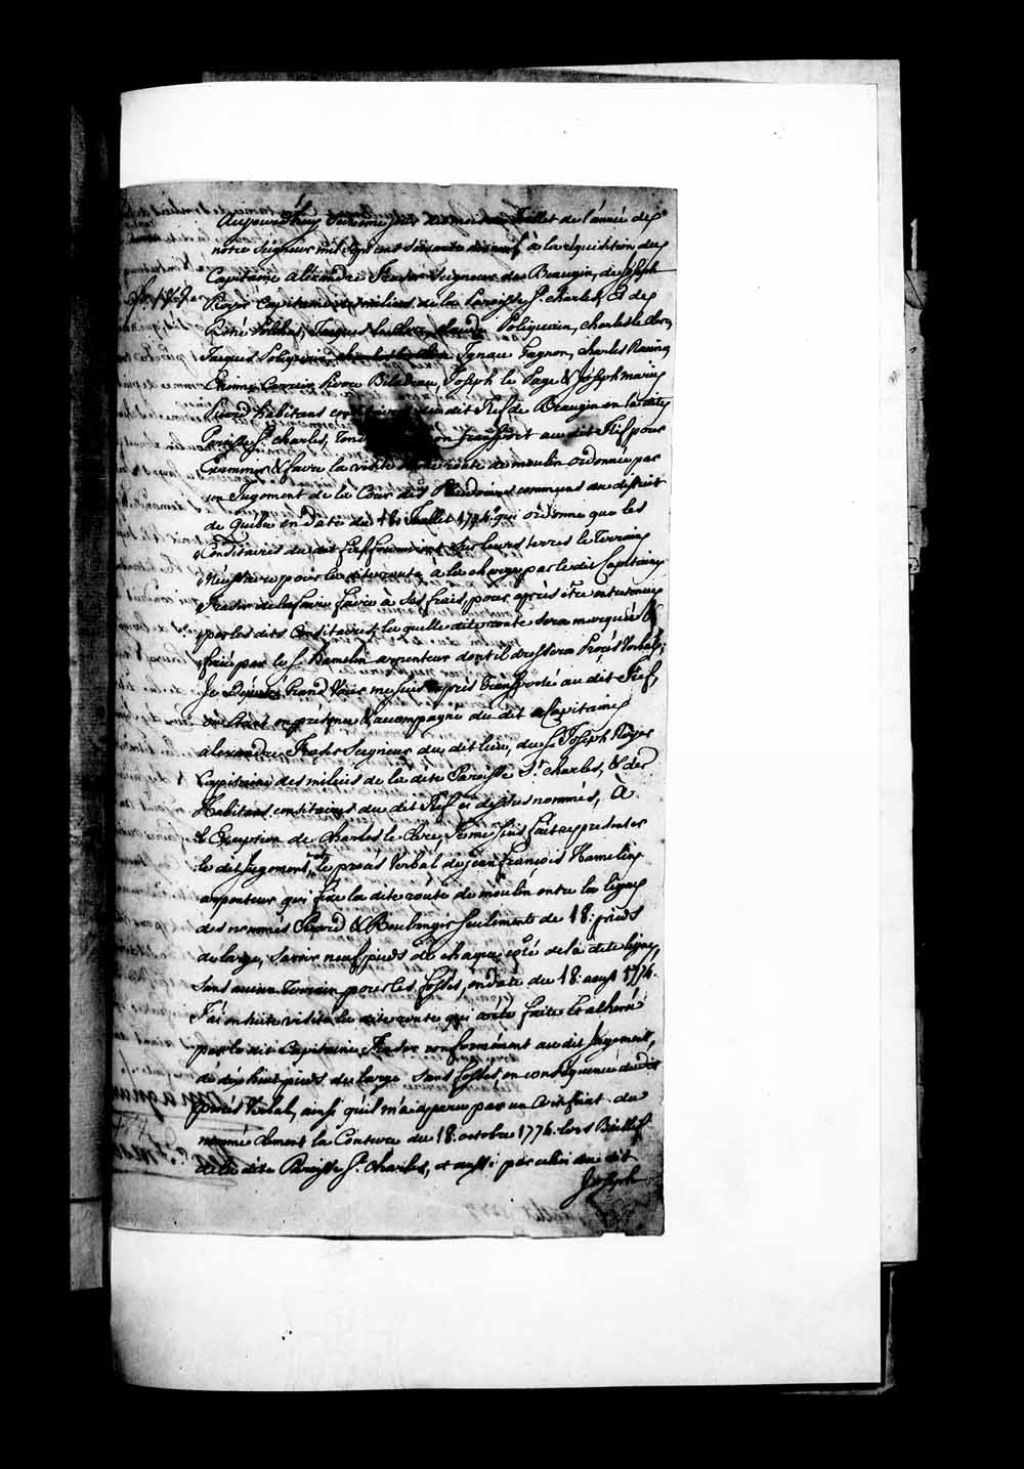 Aujourd'huy jour du mois de Juillet de l'année de
notre Seigneur mil sept cent soixante dix neuf à la réquisition du
Capitaine Alexandre Fraser Seigneur de Beaugin, de Joseph
Royer Capitaine des milices de la Paroisse St. Charles, & des
Jacques Poliquin, charles le Clerc,
Jacques Poliquin Ignace Gagnon, charles
Pierre Bilodeau, Joseph le Page & Joseph marie
habitans du dit Fief de Beaugin en la dite
Paroisse St. charles, transport au dit Fief pour
Examiner & faire la visite route de moulin ordonnée par
un Jugement de la Cour des Plaidoiers communs du district
de Québec en date du 18: Juillet 1776. qui ordonne que les
Censitaires du dit fief fourniront sur leurs terres le Terrain
Nécessaire pour la dite route, à la charge par le dit Capitaine
Fraser de la faire faire à ses frais, pour après être entretenue
par les dits Censitaires, la quelle dite route sera marquée &
fixée par le Sr. Hamelin arpenteur dont il dressera Procès Verbal;
Je Député Grand Voier me suis exprès transporté au dit Fief,
où étant en présence & accompagné du dit Capitaine
alexandre Fraser Seigneur du dit lieu, du Sr. Joseph Royer
Capitaine des milices de la dite Paroisse St. charles, & des
Habitans censitaires du dit Fief ci dessus nommés, À
l'Exception de Charles le Clerc, Je me suis fait représenter
le dit Jugement, et le procès Verbal de Jean François Hamelin
arpenteur qui fixe la dite route de moulin entre la ligne
des nommés & Boulanger seulement de 18: pieds
de large, savoir neuf pieds de chaque côté de la dite ligne,
sans aucun Terrain pour les fossés, en date du 18: aoust 1776.
J'ai ensuite visité la dite route qui a été faite & achevé
par le dit Capitaine Fraser conformément au dit Jugement,
de dix huit pieds de large sans fossés en conséquence du dit
procès Verbal, ainsi qu'il m'a aparu par un Certificat du
nommé Clement la Couture du 18: octobre 1776. lors Baillif
de la dite Paroisse St. Charles, et aussi par celui du dit
Joseph